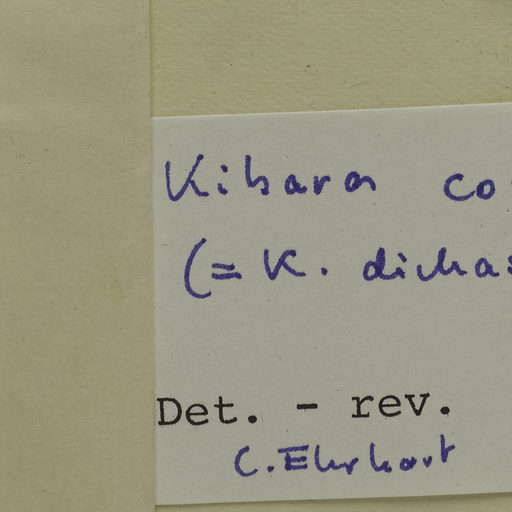 Kibara co
(= K. dichas
Det. - rev.
C. Ehrhart